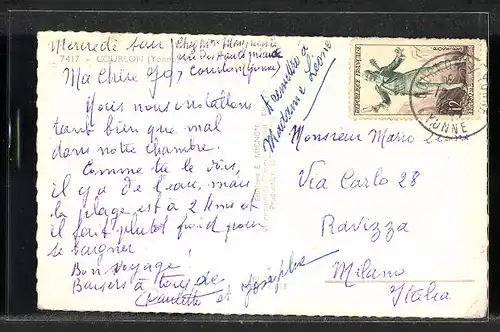 Mercredi soir
7417 - COURLON (Yonne)
rue des
Courlon (Yonne)
Ma chère
Nous nous installons
tant bien que mal
dans notre chambre.
Comme tu le vois,
il y a de l'eau, mais
la plage est à 2 kms et
il fait plutôt froid pour
se baigner.
Bon voyage!
Baisers à tous de
Claudette et Josèphe
A remettre à
Madame Leone
REPUBLIQUE FRANÇAISE
POSTES
12
YONNE
Monsieur Mario Leone
Via Carlo 28
Ravizza
Milano
Italia